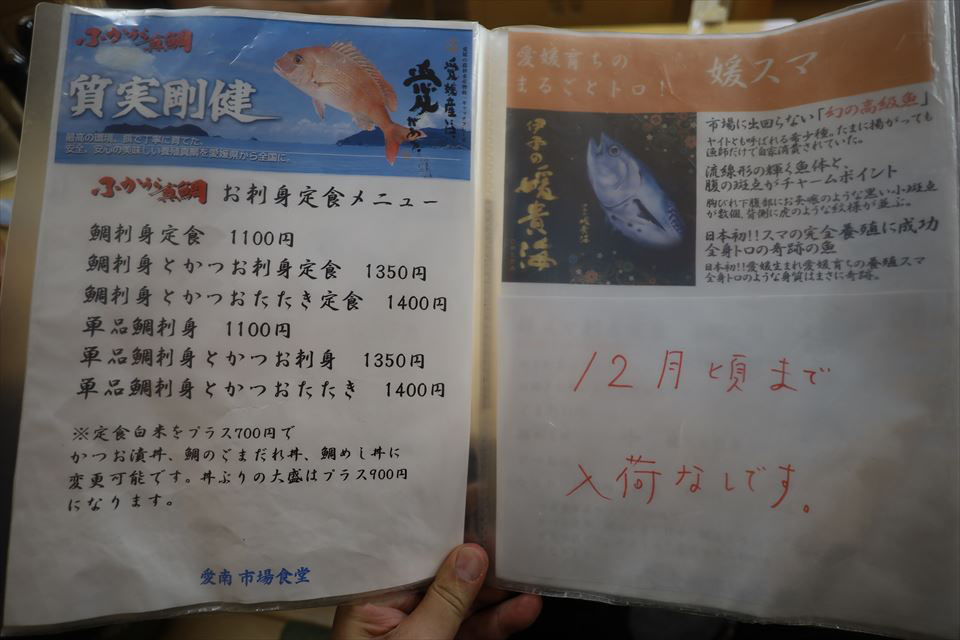 ふかうら真鯛
質実剛健
最高の環境、餌で丁寧に育てた、
安全、安心の美味しい養殖真鯛を愛媛県から全国に。
愛媛産には、
愛がある。
ふかうら真鯛 お刺身定食メニュー
鯛刺身定食 1100円
鯛刺身とかつお刺身定食 1350円
鯛刺身とかつおたたき定食 1400円
単品鯛刺身 1100円
単品鯛刺身とかつお刺身 1350円
単品鯛刺身とかつおたたき 1400円
※定食白米をプラス700円で
かつお漬丼、鯛のごまだれ丼、鯛めし丼に
変更可能です。丼ぶりの大盛はプラス900円
になります。
愛南市場食堂
愛媛育ちの
まるごとトロ!
媛スマ
伊予の媛貴海
市場に出回らない「幻の高級魚」
ヤイトとも呼ばれる希少種。たまに揚がっても
漁師だけで自家消費されていた。
流線形の輝く魚体と
腹の斑点がチャームポイント
胸びれ下腹部にお灸痕のような黒い小斑点
が数個、背側に虎のような紋様が並ぶ。
日本初!!スマの完全養殖に成功
全身トロの奇跡の魚
日本初!!愛媛生まれ愛媛育ちの養殖スマ
全身トロのような身質はまさに奇跡。
12月頃まで
入荷なしです。